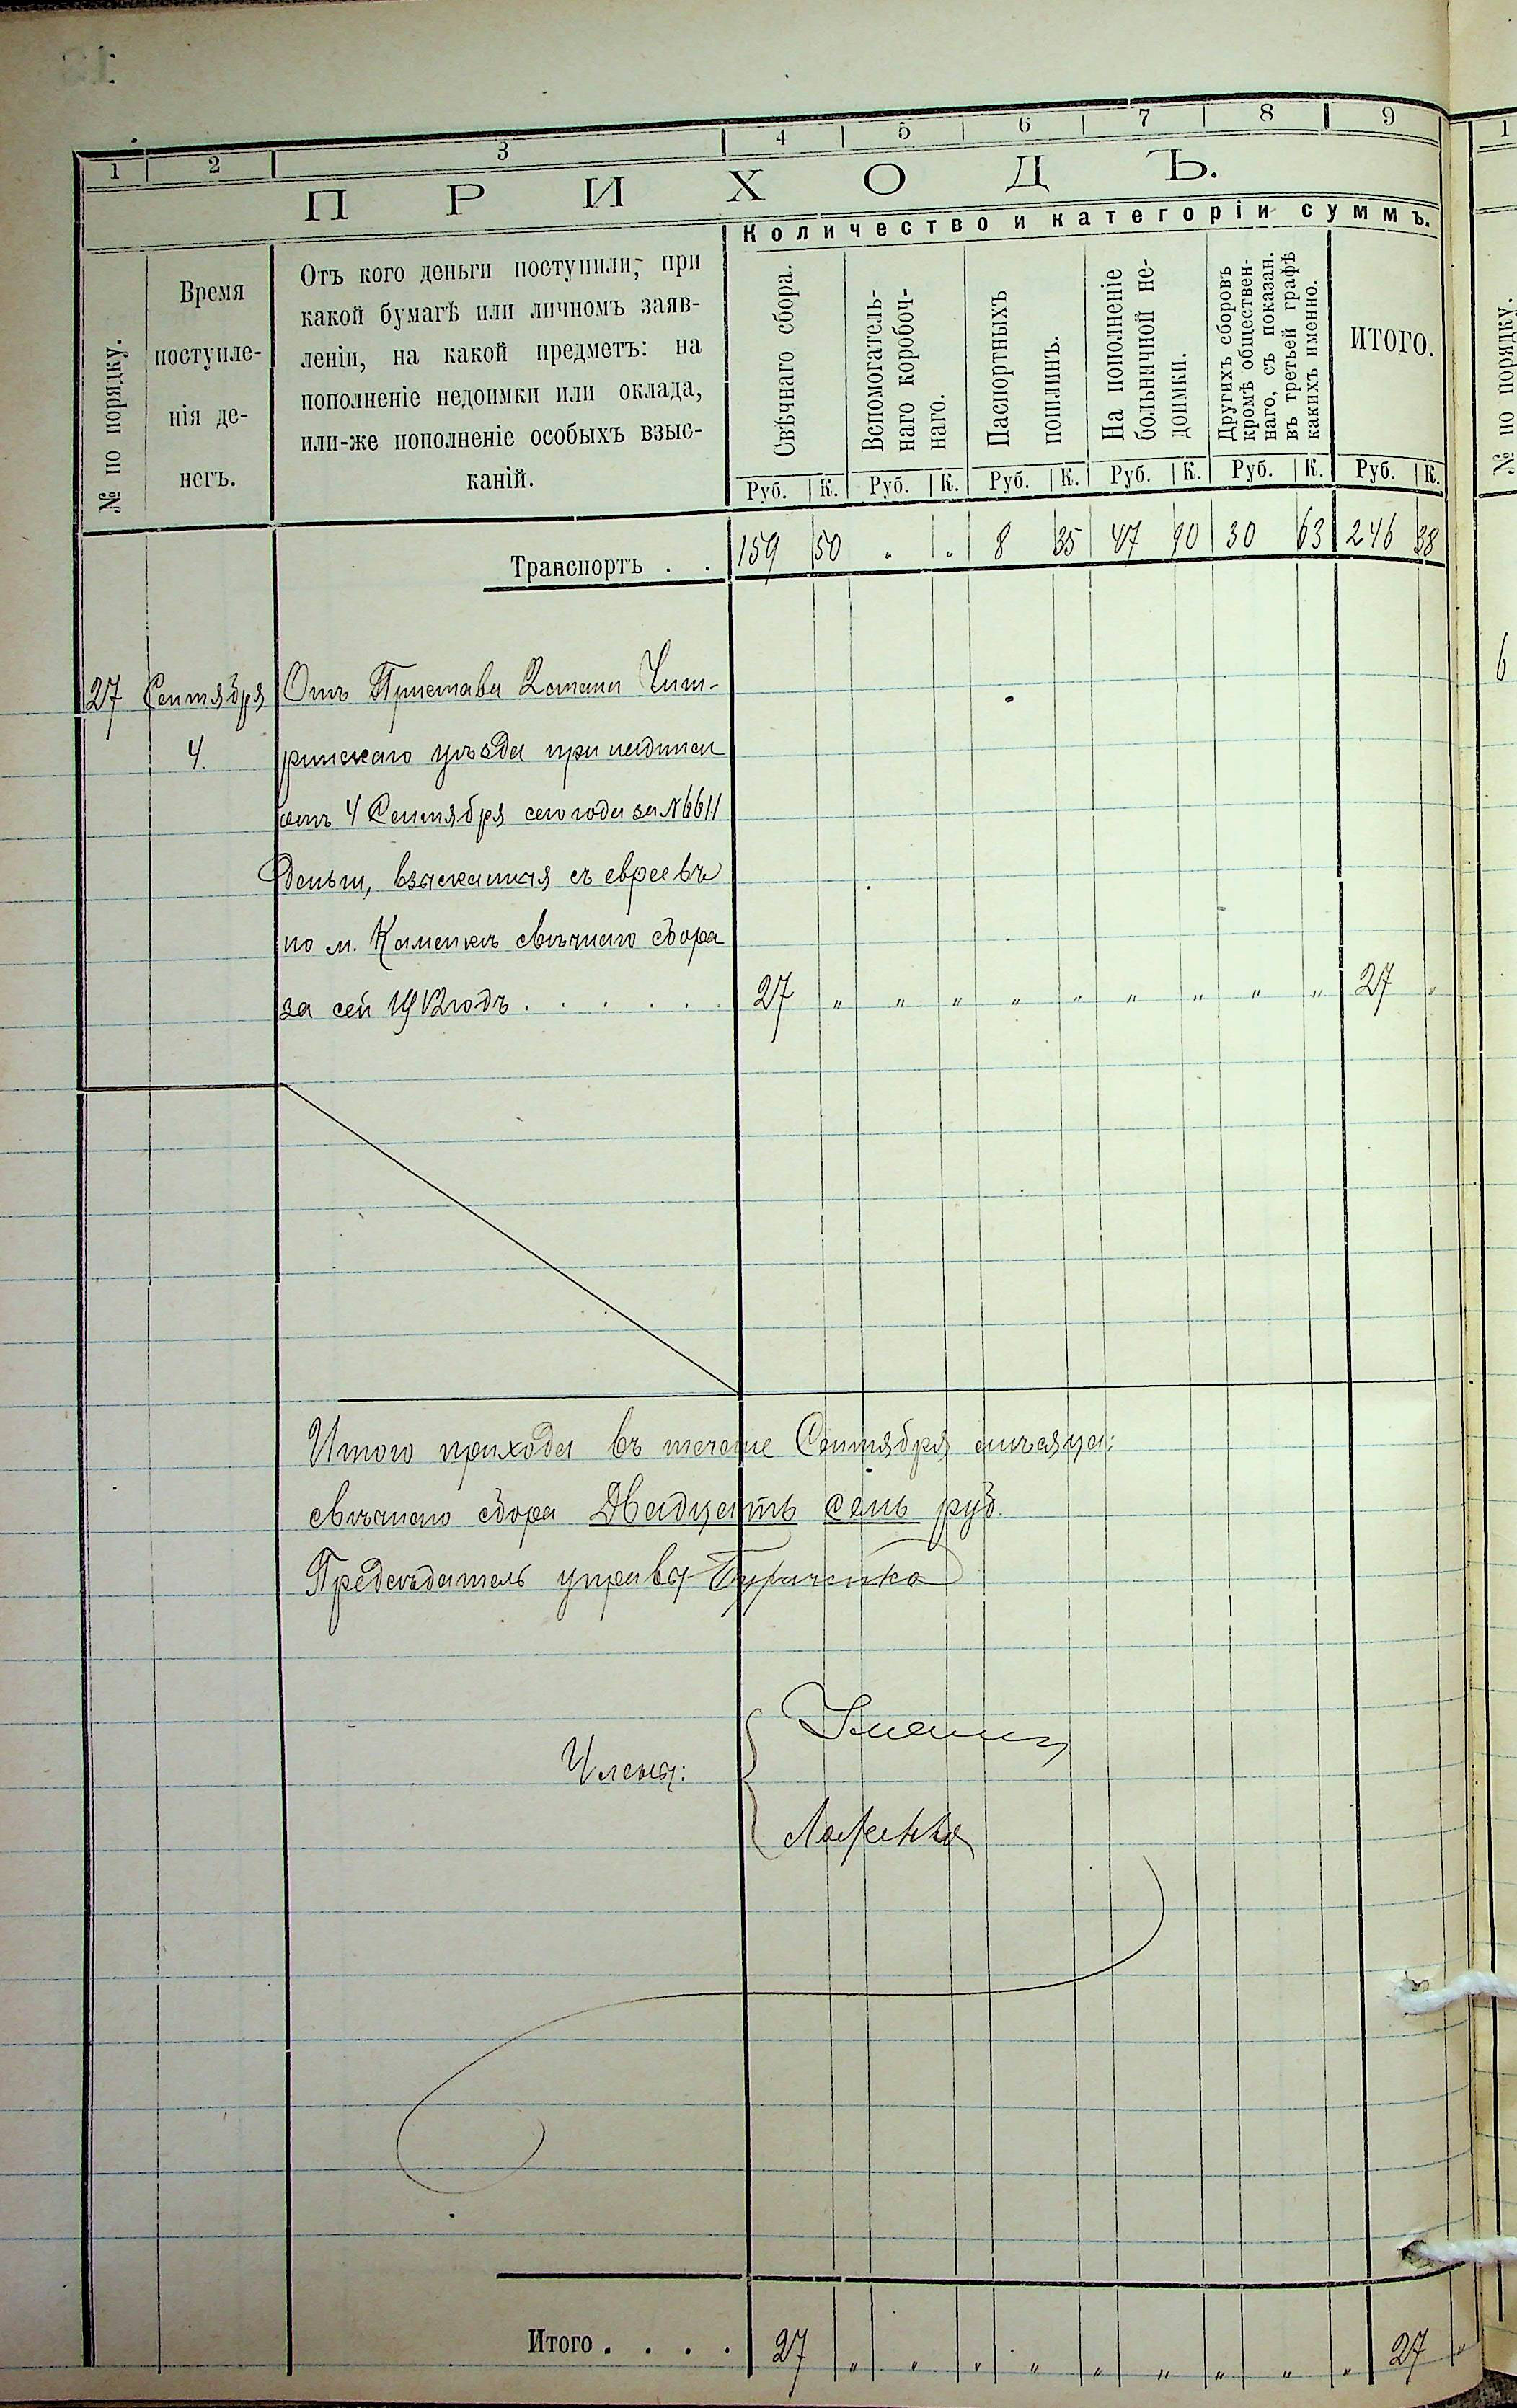 1 2 3 4 5 6 7 8 9
ПРИХОДЪ.
Количество и категоріи суммъ.
№ по порядку.
Время
поступле-
нія де-
негъ.
Отъ кого деньги поступили, при
какой бумагѣ или личномъ заяв-
леніи, на какой предметъ: на
пополненіе недоимки или оклада,
или-же пополненіе особыхъ взыс-
каній.
Свѣчнаго сбора.
Вспомогатель-
наго коробоч-
наго.
Паспортныхъ
пошлинъ.
На пополненіе
больничной не-
доимки.
Другихъ сборовъ
кромѣ обществен-
наго, съ показан.
въ третьей графѣ
какихъ именно.
ИТОГО.
Руб. К. Руб. К. Руб. К. Руб. К. Руб. К. Руб. К.
Транспортъ . . 159 50 " " 8 35 47 90 30 63 246 38
27 Сентября Отъ Пристава 2 стана Чиги-
4. ринскаго уѣзда при надписи
отъ 4 Сентября сего года за № 6611
деньги, взысканныя съ евреевъ
по м. Каменкѣ свѣчнаго сбора
за сей 1912 годъ . . . . . . 27 " " " " " " " " " 27 "
Итого прихода въ теченіе Сентября мѣсяца:
свѣчнаго сбора Двадцать семь руб.
Предсѣдатель управы
Члены:
Итого . . . . 27 " " " " " " " " " 27 "
1
№ по порядку.
6